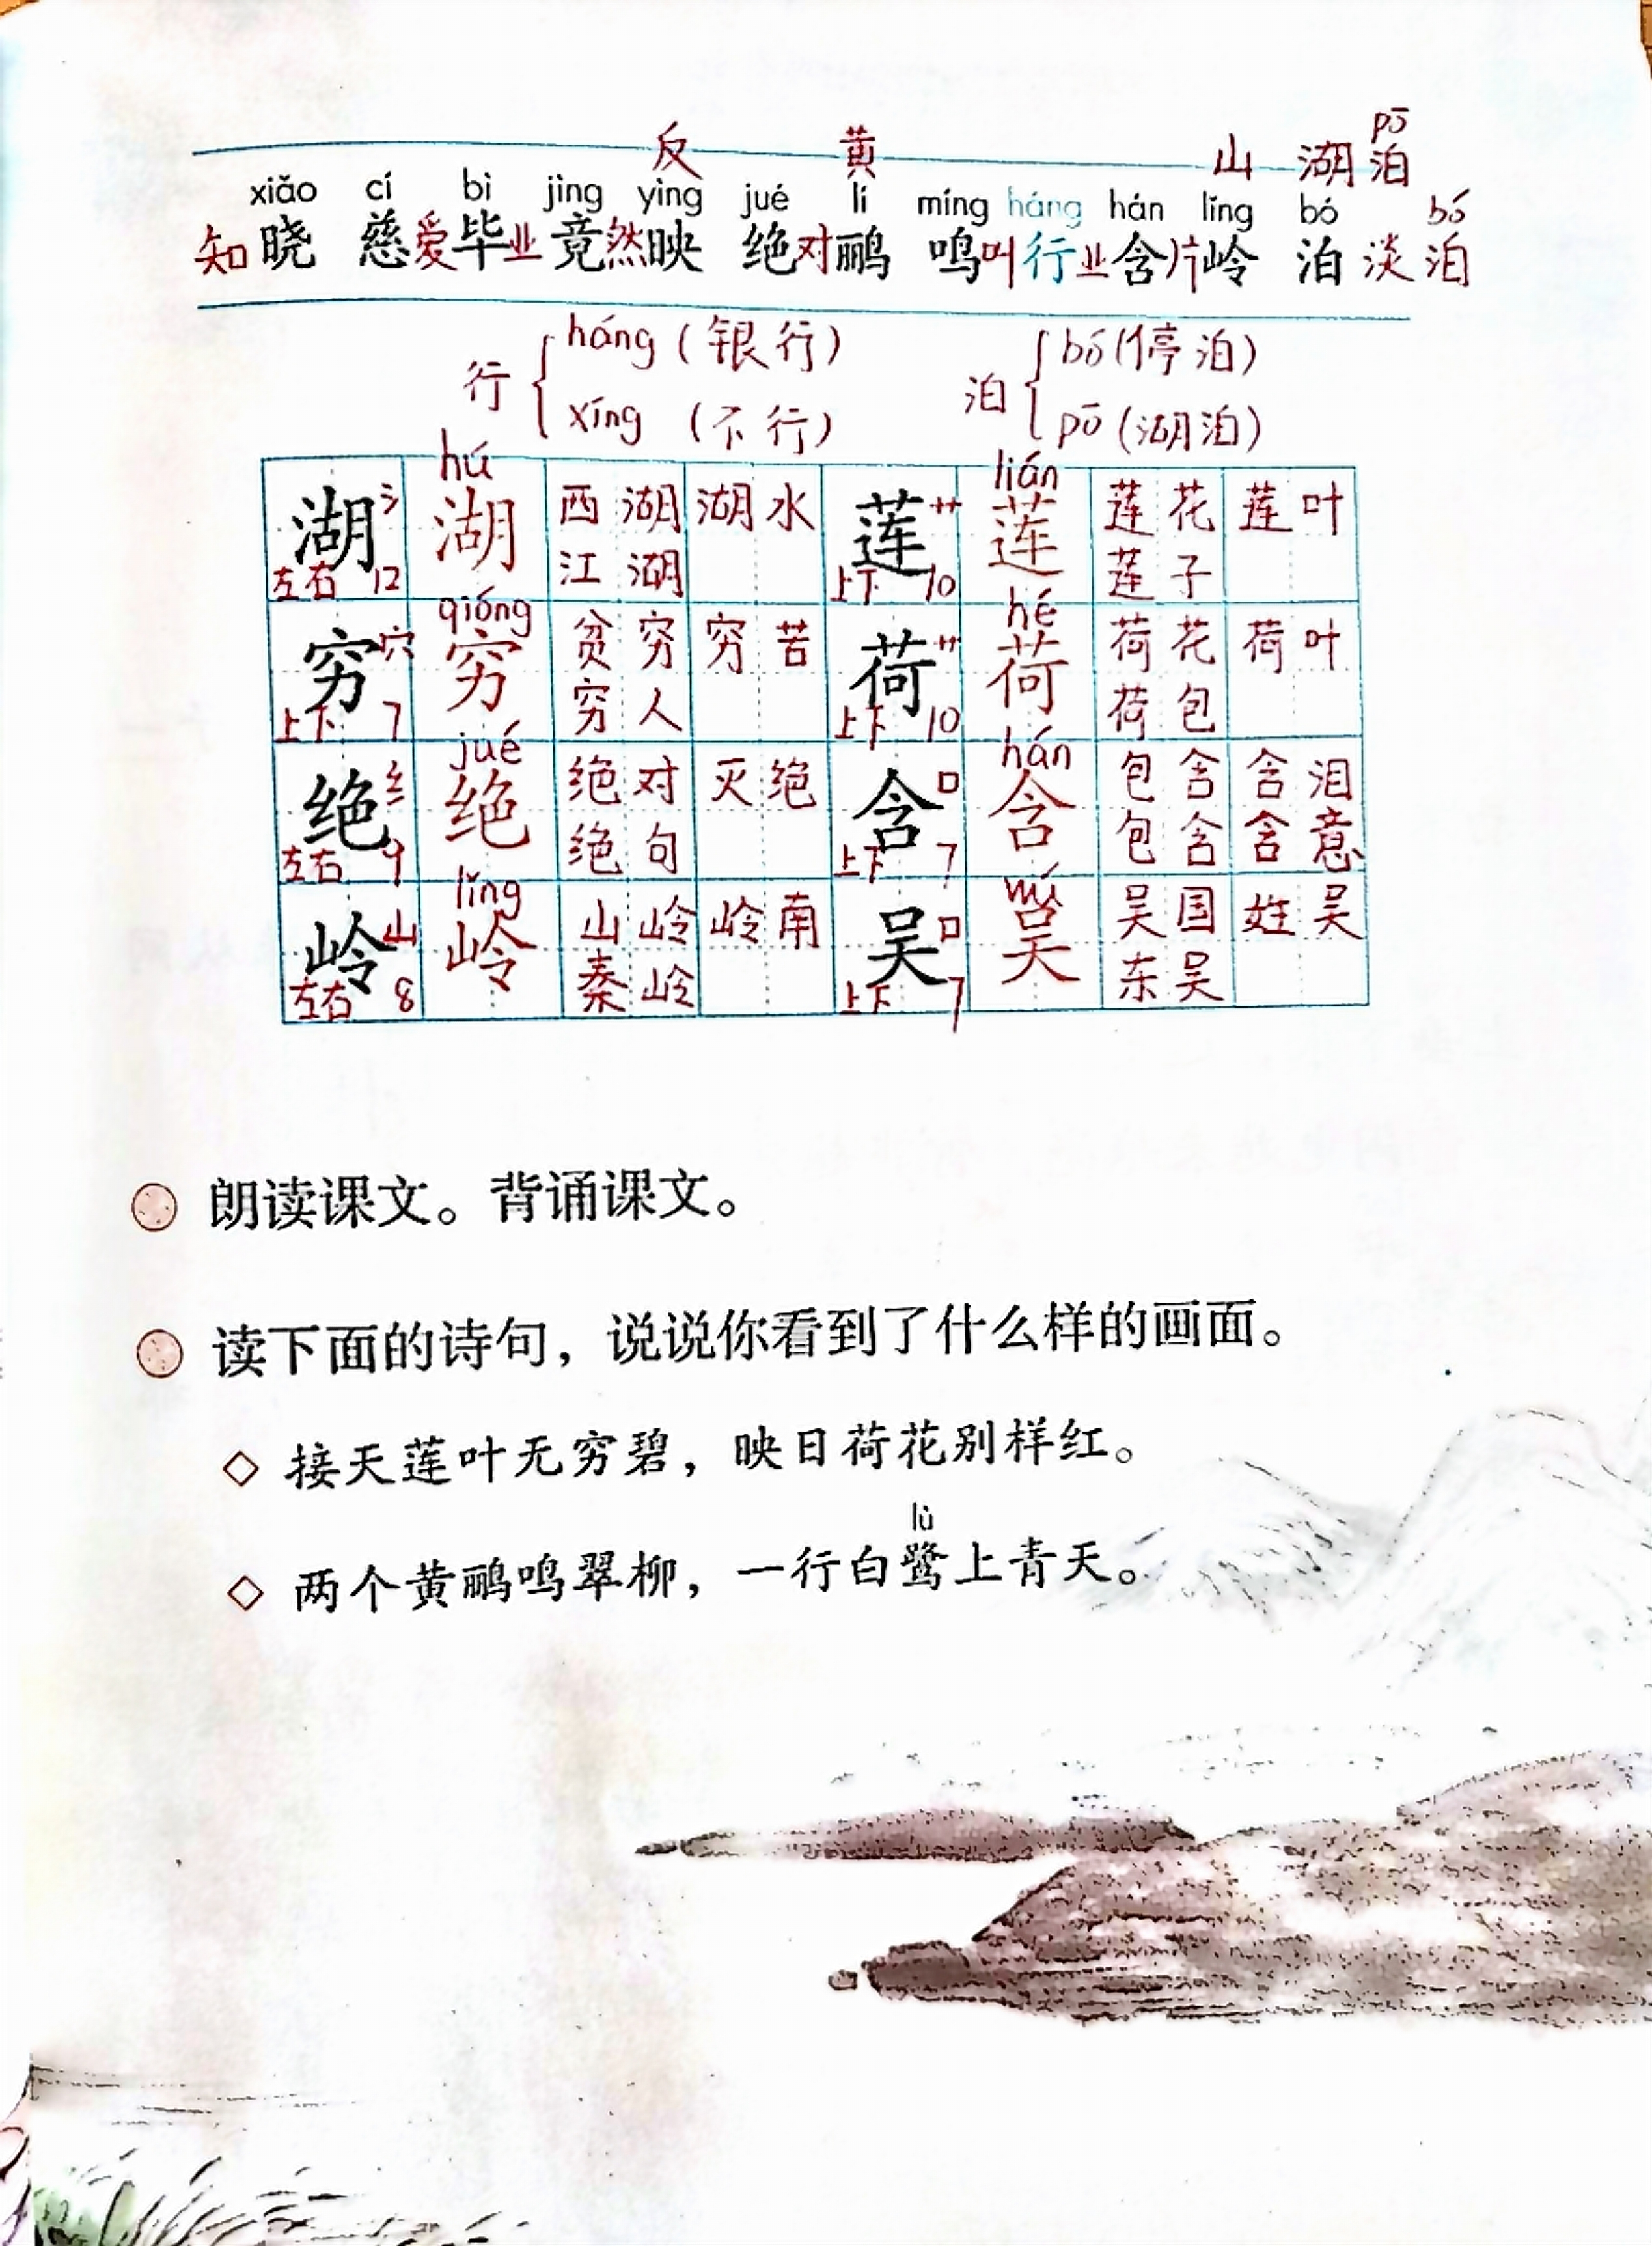 反 黄 山 湖泊 pō
xiǎo cí bì jìng yìng jué lí míng háng hán lǐng bó bó
知晓 慈爱毕业竟然映 绝对鹂 鸣叫行业含片岭 泊 淡泊
行 háng（银行） xíng（不行）
泊 bó（停泊） pō（湖泊）
hú lián
湖 氵 左右 12 湖 西湖 湖水 江湖 莲 艹 上下 10 莲 莲花 莲叶 莲子
qióng hé
穷 穴 上下 7 穷 贫穷 穷苦 穷人 荷 艹 上下 10 荷 荷花 荷叶 荷包
jué hán
绝 纟 左右 9 绝 绝对 灭绝 绝句 含 口 上下 7 含 包含 含泪 包含 含意
lǐng wú
岭 山 左右 8 岭 山岭 岭南 秦岭 吴 口 上下 7 吴 吴国 姓吴 东吴
朗读课文。背诵课文。
读下面的诗句，说说你看到了什么样的画面。
◇ 接天莲叶无穷碧，映日荷花别样红。
lù
◇ 两个黄鹂鸣翠柳，一行白鹭上青天。